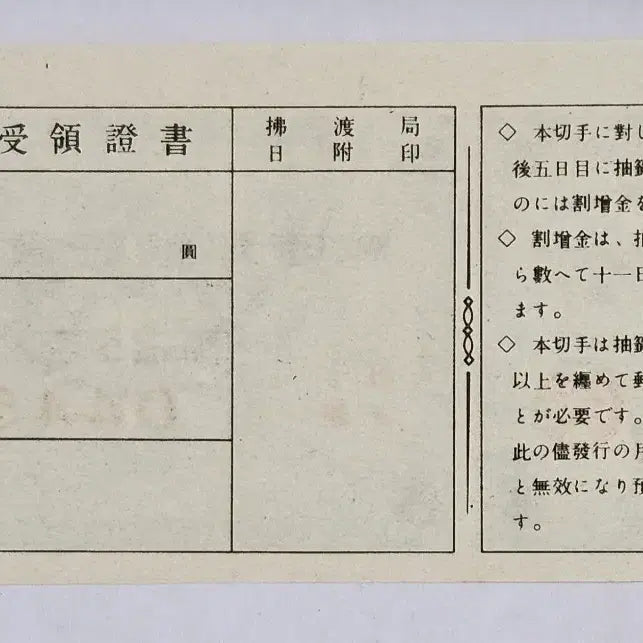 受領證書
圓
拂渡局
日附印
◇ 本切手に對し
後五日目に抽籤
のには割增金を
◇ 割增金は、抽
ら數へて十一日
ます。
◇ 本切手は抽籤
以上を纏めて郵
とが必要です。
此の儘發行の月
と無效になり預
す。